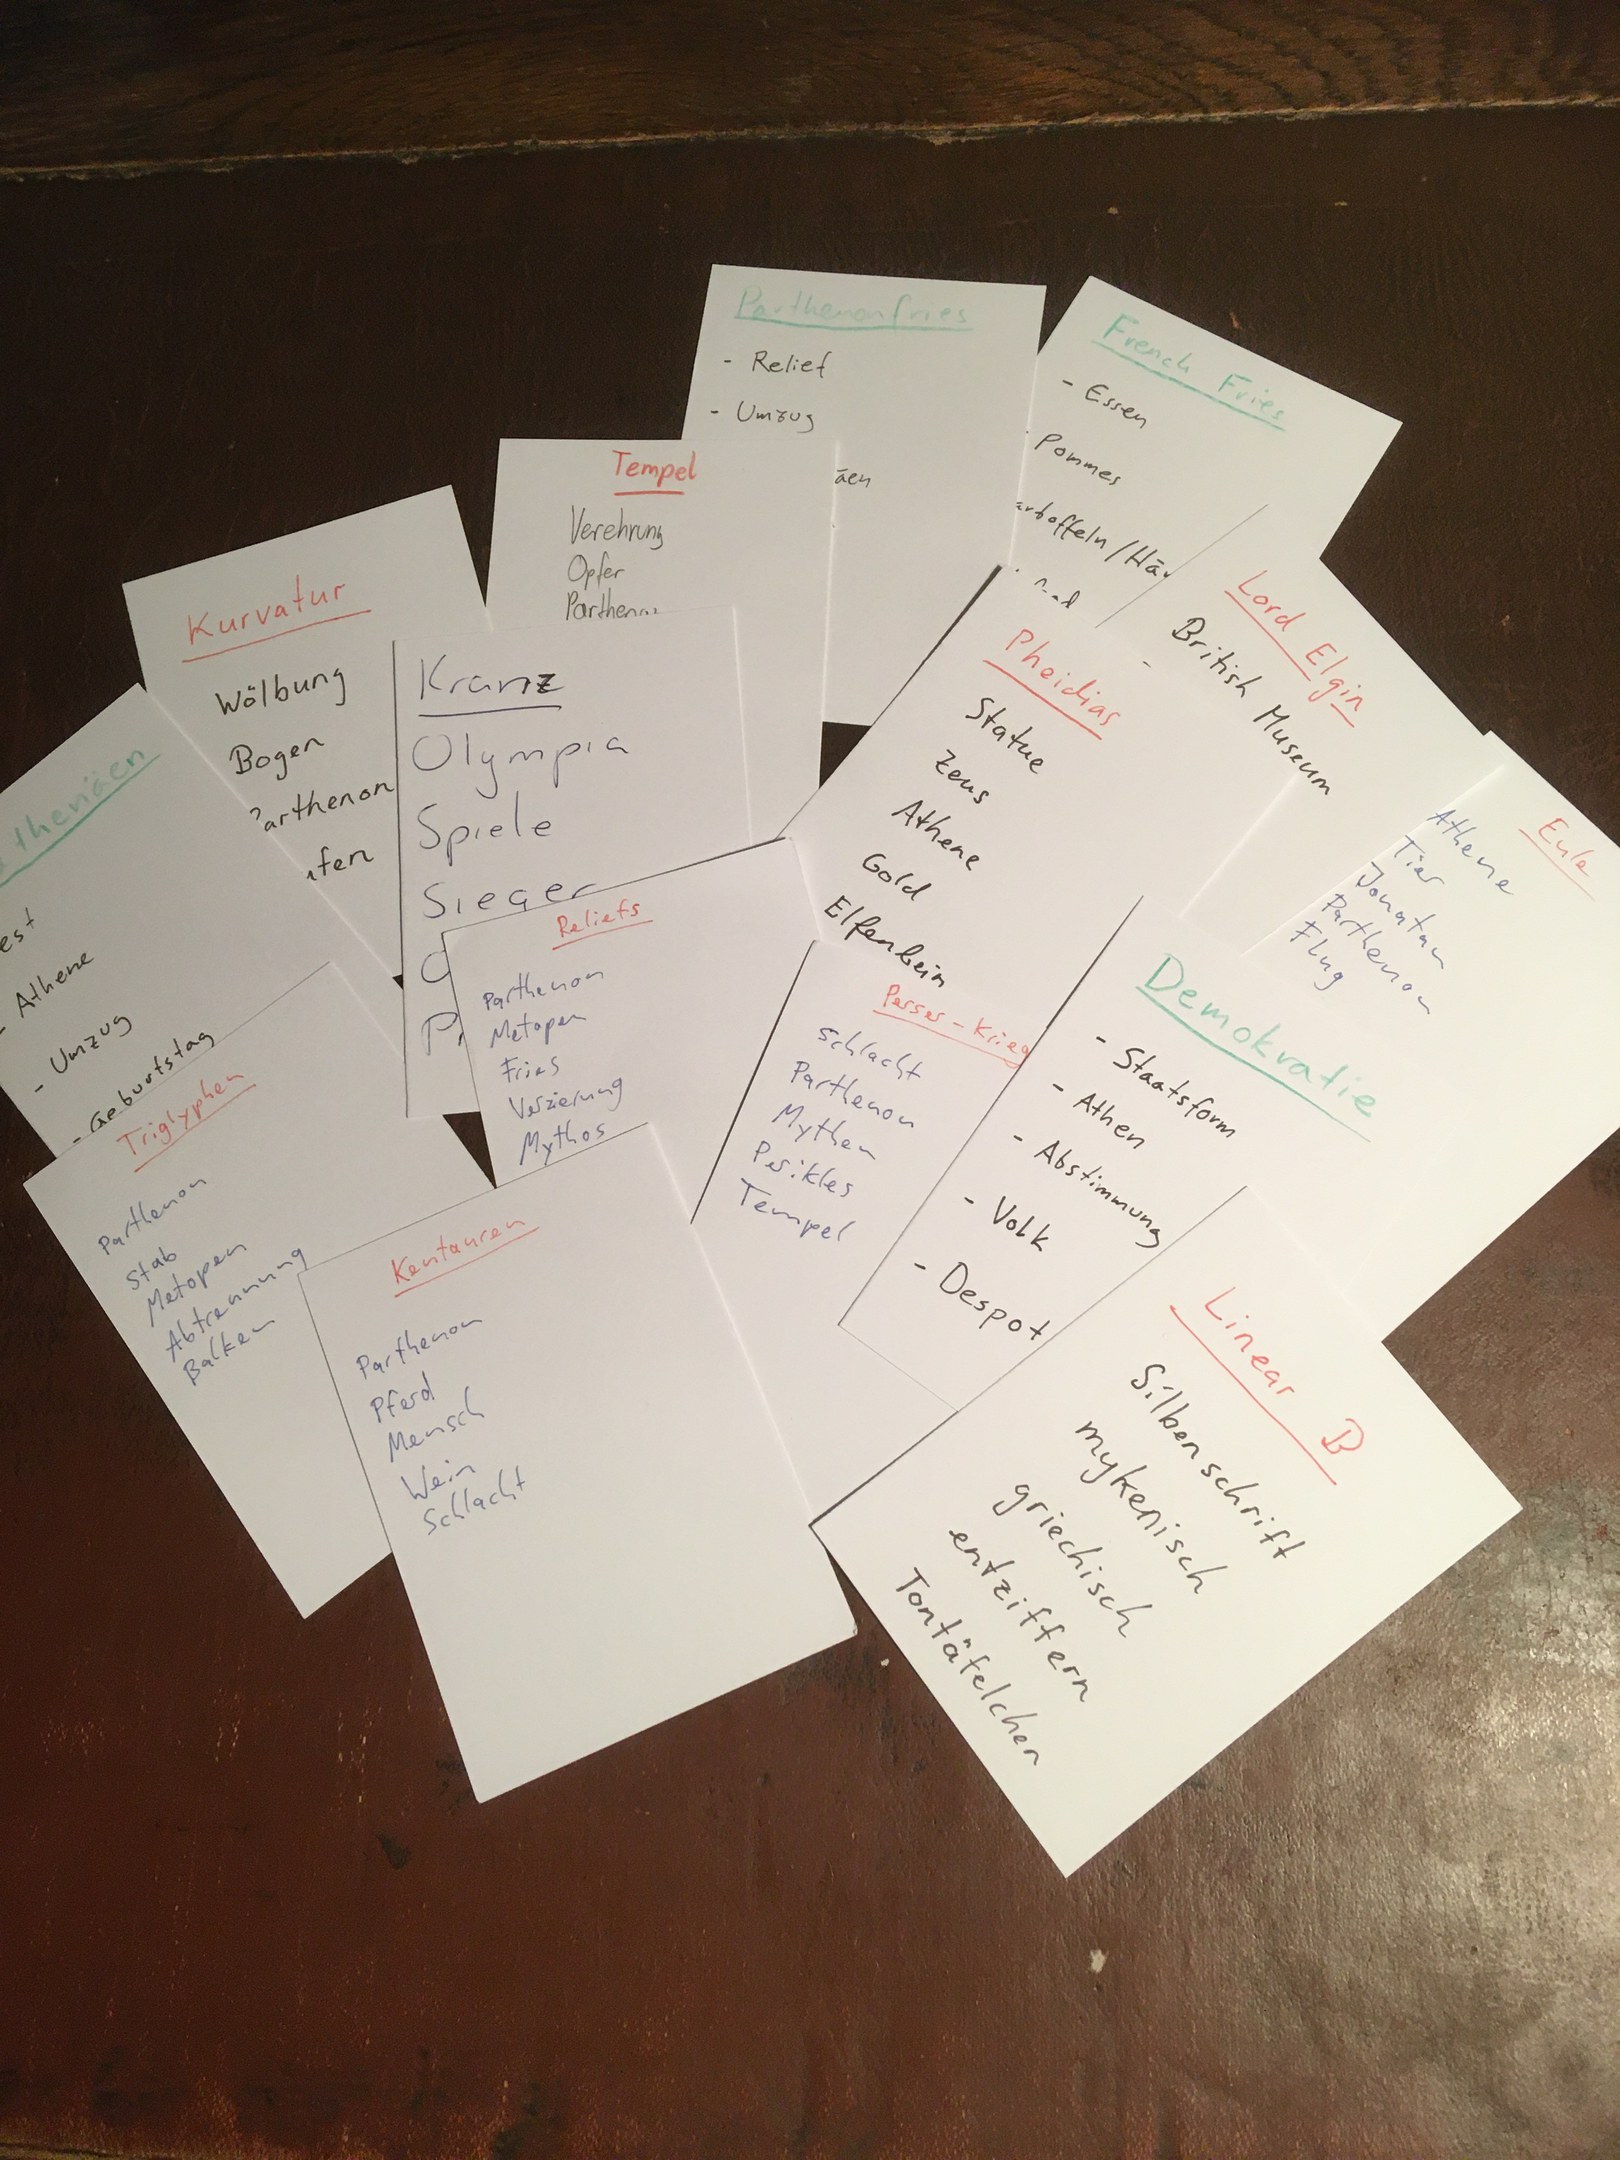 Parthenonfries
- Relief
- Umzug
äen
French Fries
- Essen
Pommes
Tempel
Verehrung
Opfer
Kurvatur
Wölbung
Bogen
arthenon
Kranz
Olympia
Spiele
Sieger
Pheidias
Statue
Zeus
Athene
Gold
Elfenbein
Lord Elgin
British Museum
Eule
Athene
Tier
Jonatan
Parthenon
Flug
thenäen
est
- Athene
- Umzug
- Geburtstag
Triglyphen
Parthenon
Stab
Metopen
Abtrennung
Balken
Reliefs
Parthenon
Metopen
Fries
Verzierung
Mythos
Perser-Krieg
Schlacht
Parthenon
Mythen
Perikles
Tempel
Demokratie
- Staatsform
- Athen
- Abstimmung
- Volk
- Despot
Kentauren
Parthenon
Pferd
Mensch
Wein
Schlacht
Linear B
Silbenschrift
mykenisch
griechisch
entziffern
Tontäfelchen